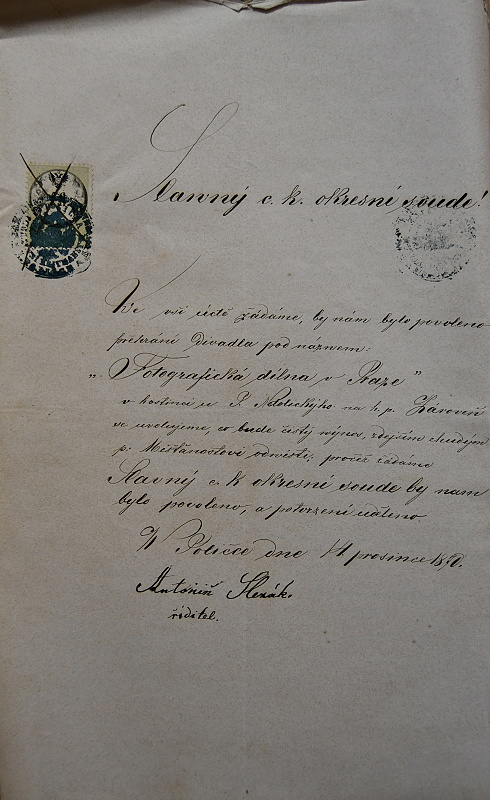 Slavný c. k. okresní soude!
Ve vší úctě žádáme, by nám bylo povoleno
přehrání Divadla pod názwem:
„Fotografická dílna v Praze"
v hostinci u P. na h. p. Zároveň
se uvolujeme, co bude čistý výnos, zdejším chudým
p. Měšťanostovi odvésti; pročež žádáme
Slavný c. k. okresní soude by nam
bylo povoleno, a potvrzení uděleno
V Poličce dne 14 prosince
Antonín Slezák.
ředitel.